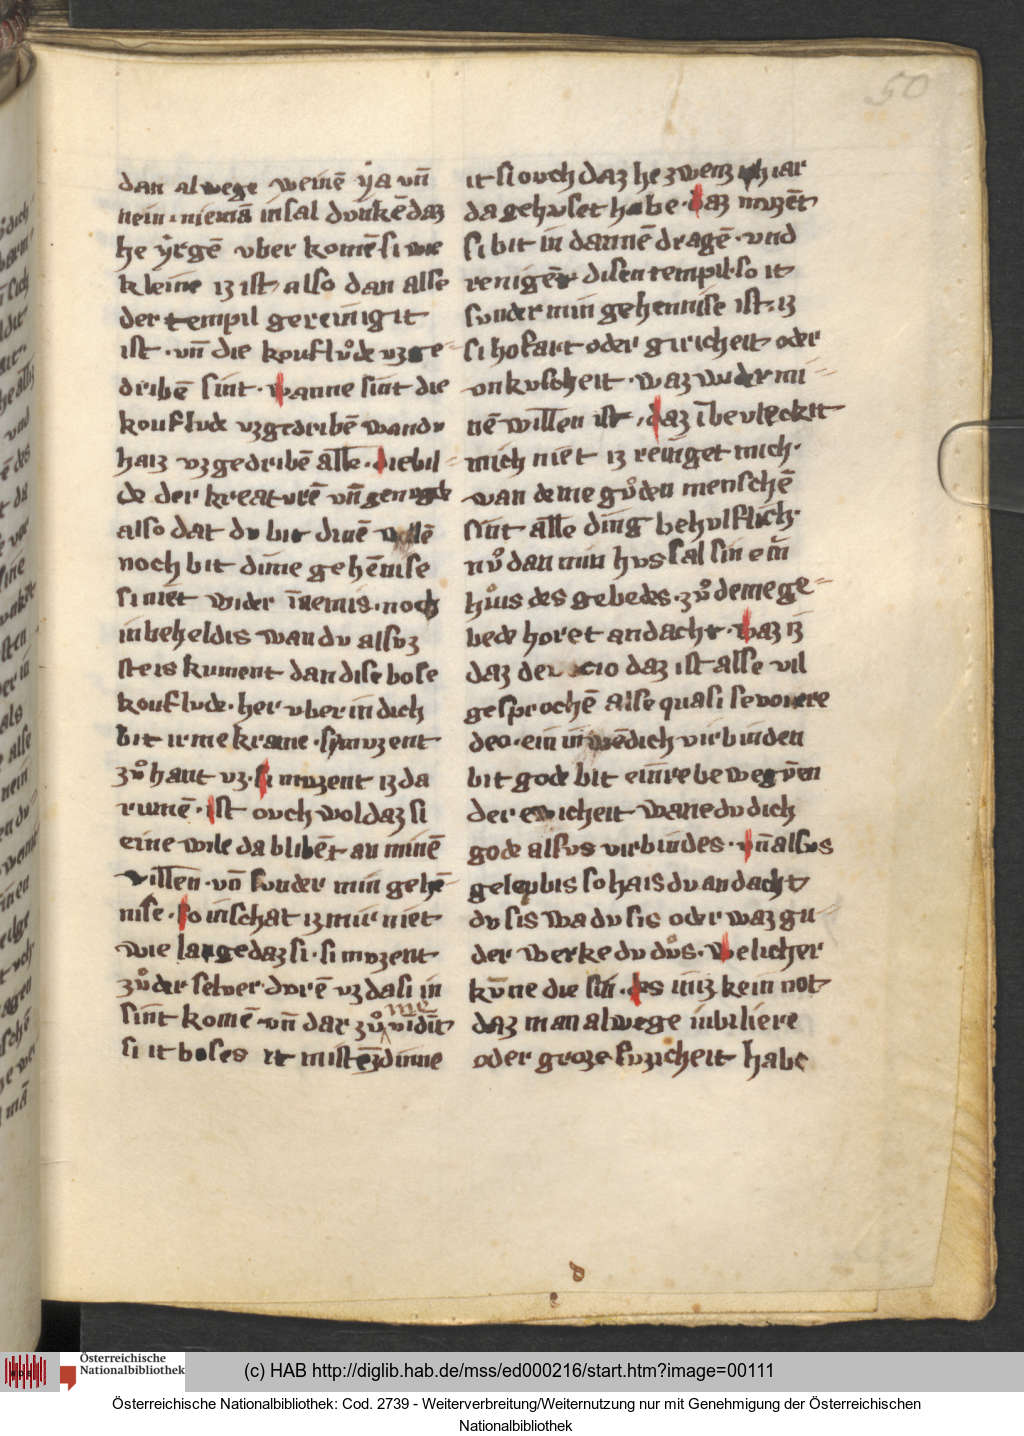 50
dan alwege weinē ẏa vn̄
nein · niemā insal dvnkē daz
he ẏrgē vber komē si wie
kleine iz ist also dan alse
der tempil gereinigit
ist · vn̄ die kouflvͦde vzge-
dribē sint · wanne sint die
kouflvde vzgedribē wandv
haiz vzgedribē alle · diebil-
de der kreatvrē vn̄ genvgde
also dat dv bit dinē willē
noch bit dinie gehēnise
si niet wider inemis · noch
inbeheldis wan dv alsvz
steis kument dan dise bose
kouflvde · her vber in dich
bit irme krame · si mvzent
zvͦ hant vz · si mvzent iz da
rumē · ist ovch wol daz si
eine wile da blibēt an minē
willen · vn̄ svnder min gehē
nise · so inschat iz mir niet
wie lange daz si · si mvzent
zvͦ der selver dvrē vz da si in
sint komē vn̄ dar zvͦ me
si it boses it mistez dinne
it si ovch daz he zwenzich iar
da gehvset habe · daz mvzēt
si bit in dannē dragē · vnd
renigēt disen tempil · so it
svnder min gehennise ist · iz
si hofart oder giricheit oder
vnkvscheit · waz wider mi-
nē willen ist · daz ī bevleckit
mich niet iz reiniget mich ·
wan deme gvͦden menschē
sint alle ding behvlflich ·
nvͦ dan min hvs sal sin ein
hus des gebedes · zvͦ deme ge-
bede horet andacht · waz iz
daz devocio daz ist alse vil
gesprochē alse quasi se vovere
deo · ein inwēdich virbinden
bit gode bit einre bewegvͦen
der ewicheit wane dv dich
gode alsvs virbindes · vn̄ alsvs
gelepbis so hais dv andacht
dv sis wa dv sis oder waz gu-
der werke dv dvͦs · welicher
kvͦne die sin · des iniz kein not
daz man alwege inbiliere
oder groze svzicheit habe
(c) HAB http://diglib.hab.de/mss/ed000216/start.htm?image=00111
Österreichische
Nationalbibliothek
Österreichische Nationalbibliothek: Cod. 2739 - Weiterverbreitung/Weiternutzung nur mit Genehmigung der Österreichischen
Nationalbibliothek